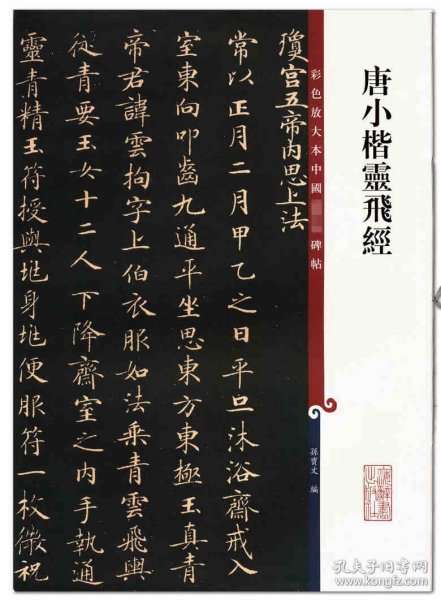 唐小楷靈飛經
彩色放大本中國
碑帖
孫寶文 編
瓊宫五帝内思上法
常以正月二月甲乙之日平旦沐浴齋戒入
室東向叩齒九通平坐思東方東極玉真青
帝君諱雲拘字上伯衣服如法乘青雲飛輿
從青要玉女十二人下降齋室之内手執通
靈青精玉符授與兆身兆便服符一枚微祝
孔夫子旧书网
www.kongfz.com